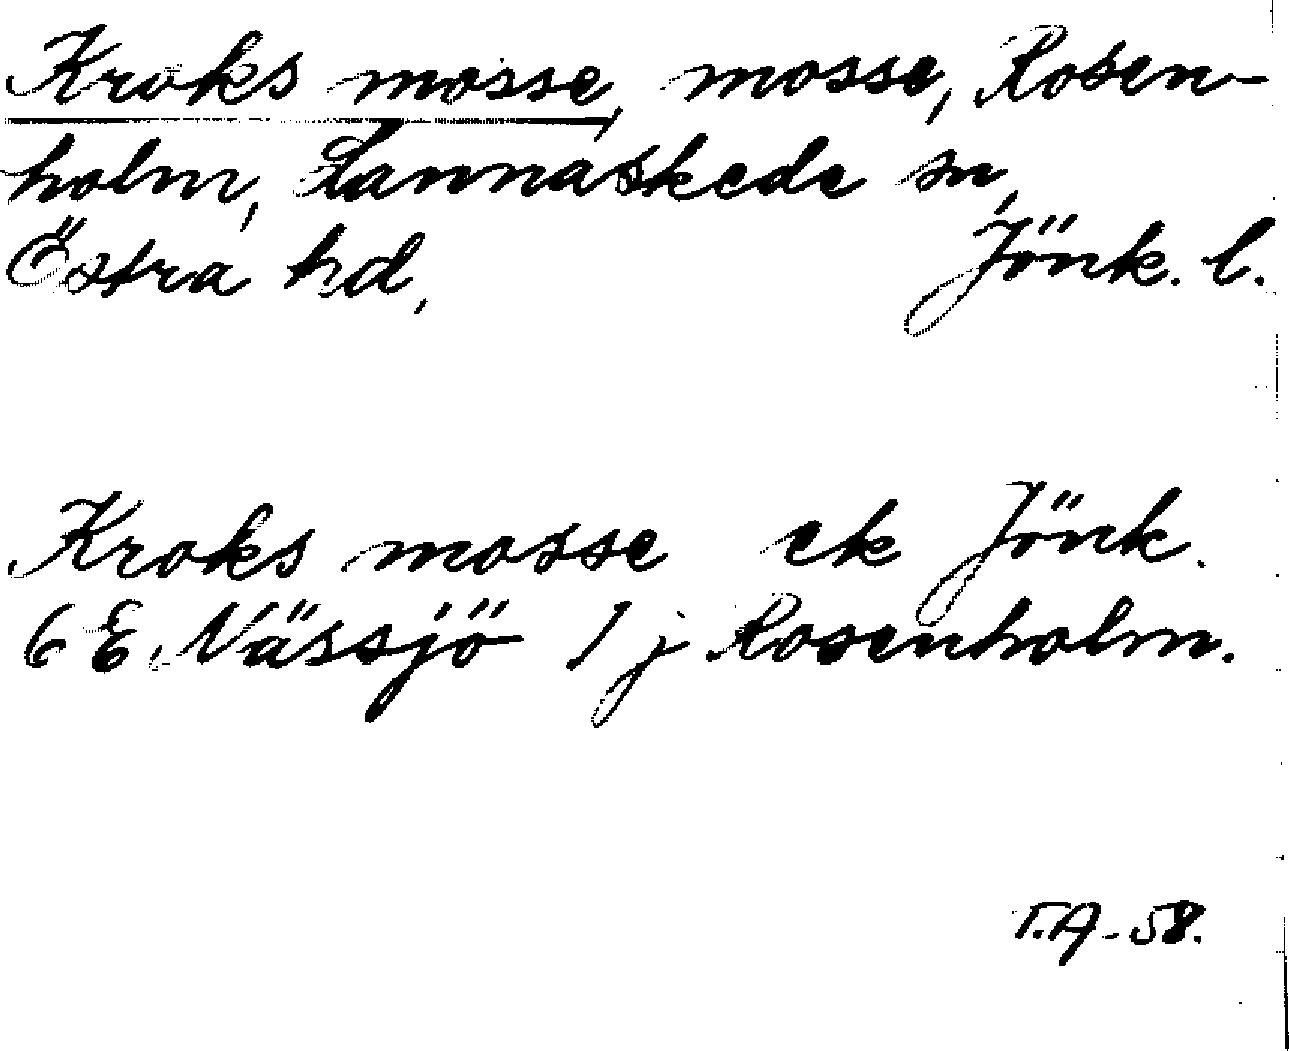 Kroks mosse, mosse, Rosen-
holm, Lannaskede sn,
Östra hd, Jönk. l.
Kroks mosse ek Jönk.
6 E. Nässjö 1 j Rosenholm.
T.A-58.